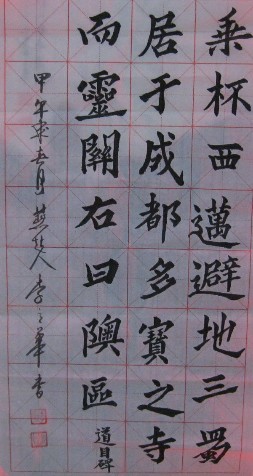 乘杯西邁避地三蜀
居于成都多寶之寺
而靈關右曰隩區
道因碑
甲午年五月燕人李